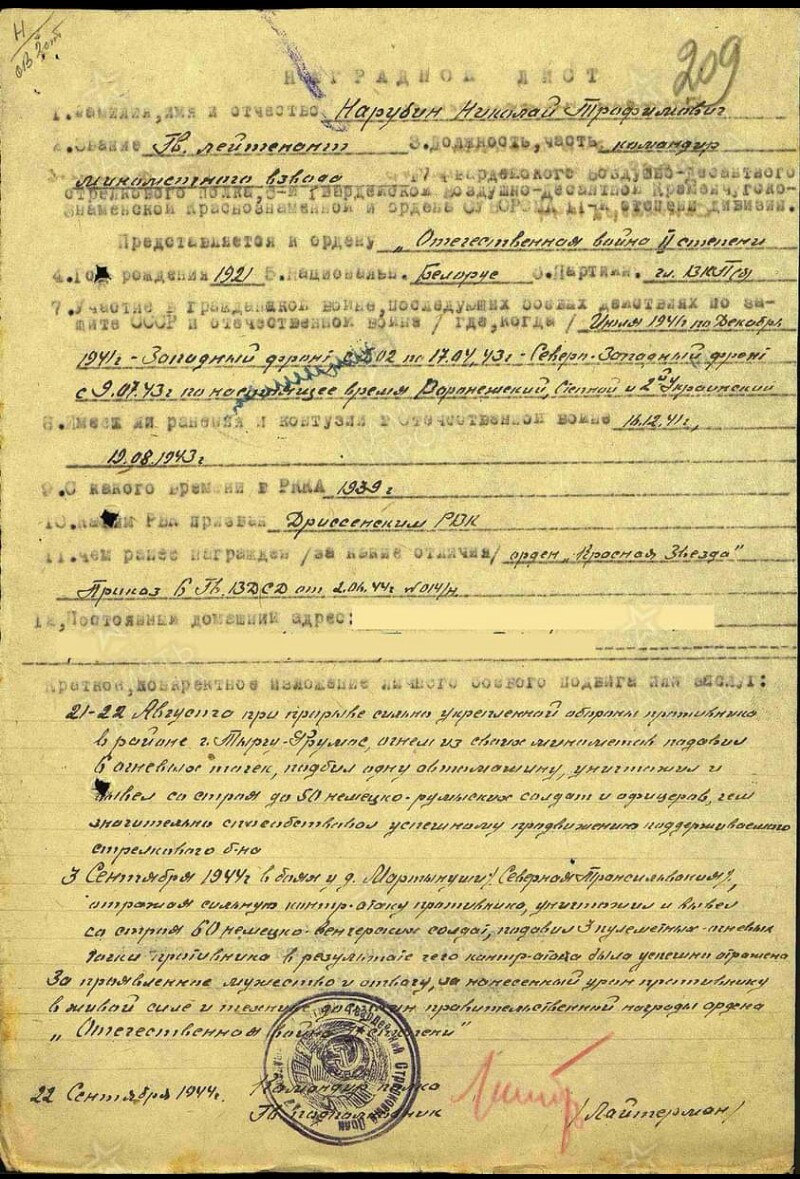 Н/
ОВ 2 ст
209
НАГРАДНОЙ ЛИСТ
1. Фамилия, имя и отчество Карубин Николай Трофимович
2. Звание Гв. лейтенант 3. Должность, часть командир
минометного взвода 17 Гвардейского Воздушно-десантного
стрелкового полка, Гвардейской Воздушно-Десантной Кременч. Крас-
знаменской Краснознаменной и ордена СУВОРОВА II-й степени дивизии.
Представляется к ордену „Отечественная война II степени
4. Год рождения 1921 5. Национальн. Белорус 6. Партийн. чл. ВКП(б)
7. Участие в гражданской войне, последующих боевых действиях по за-
щите СССР и отечественной войне /где, когда/ Июля 1941г по Декабрь
1941г - Западный фронт с 02 по 17.04.43г - Северо-Западный фронт
с 9.07.43г по настоящее время Воронежский, Степной и 2й Украинский
8. Имеет ли ранения и контузии в Отечественной войне 16.12.41г,
19.08.1943г
9. С какого времени в РККА 1939г
10. Каким РВК призван Дриссенским РВК
11. Чем ранее награжден /за какие отличия/ орден „Красная Звезда"
Приказ 6 Гв. ВДСД от 2.04.44г № 014/н
12, Постоянный домашний адрес:
Краткое, конкретное изложение личного боевого подвига или заслуг:
21-22 Августа при прорыве сильно укрепленной обороны противника
в районе г. Тыргу-Фрумос, огнем из своих минометов подавил
6 огневых точек, подбил одну автомашину, уничтожил и
вывел со строя до 50 немецко-румынских солдат и офицеров, чем
значительно способствовал успешному продвижению поддерживаемого
стрелкового б-на
3 Сентября 1944г в боях у д. Мартынуши /Северная Трансильвания/,
отражая сильную контр-атаку противника, уничтожил и вывел
со строя 60 немецко-венгерских солдат, подавил 3 пулеметных-огневых
точки противника в результате чего контр-атака была успешно отражена
За проявленное мужество и отвагу, за нанесенный урон противнику
в живой силе и технике достоин правительственной награды ордена
„Отечественная война степени"
22 Сентября 1944г. Командир полка
Гв подполковник /Лайтерман/